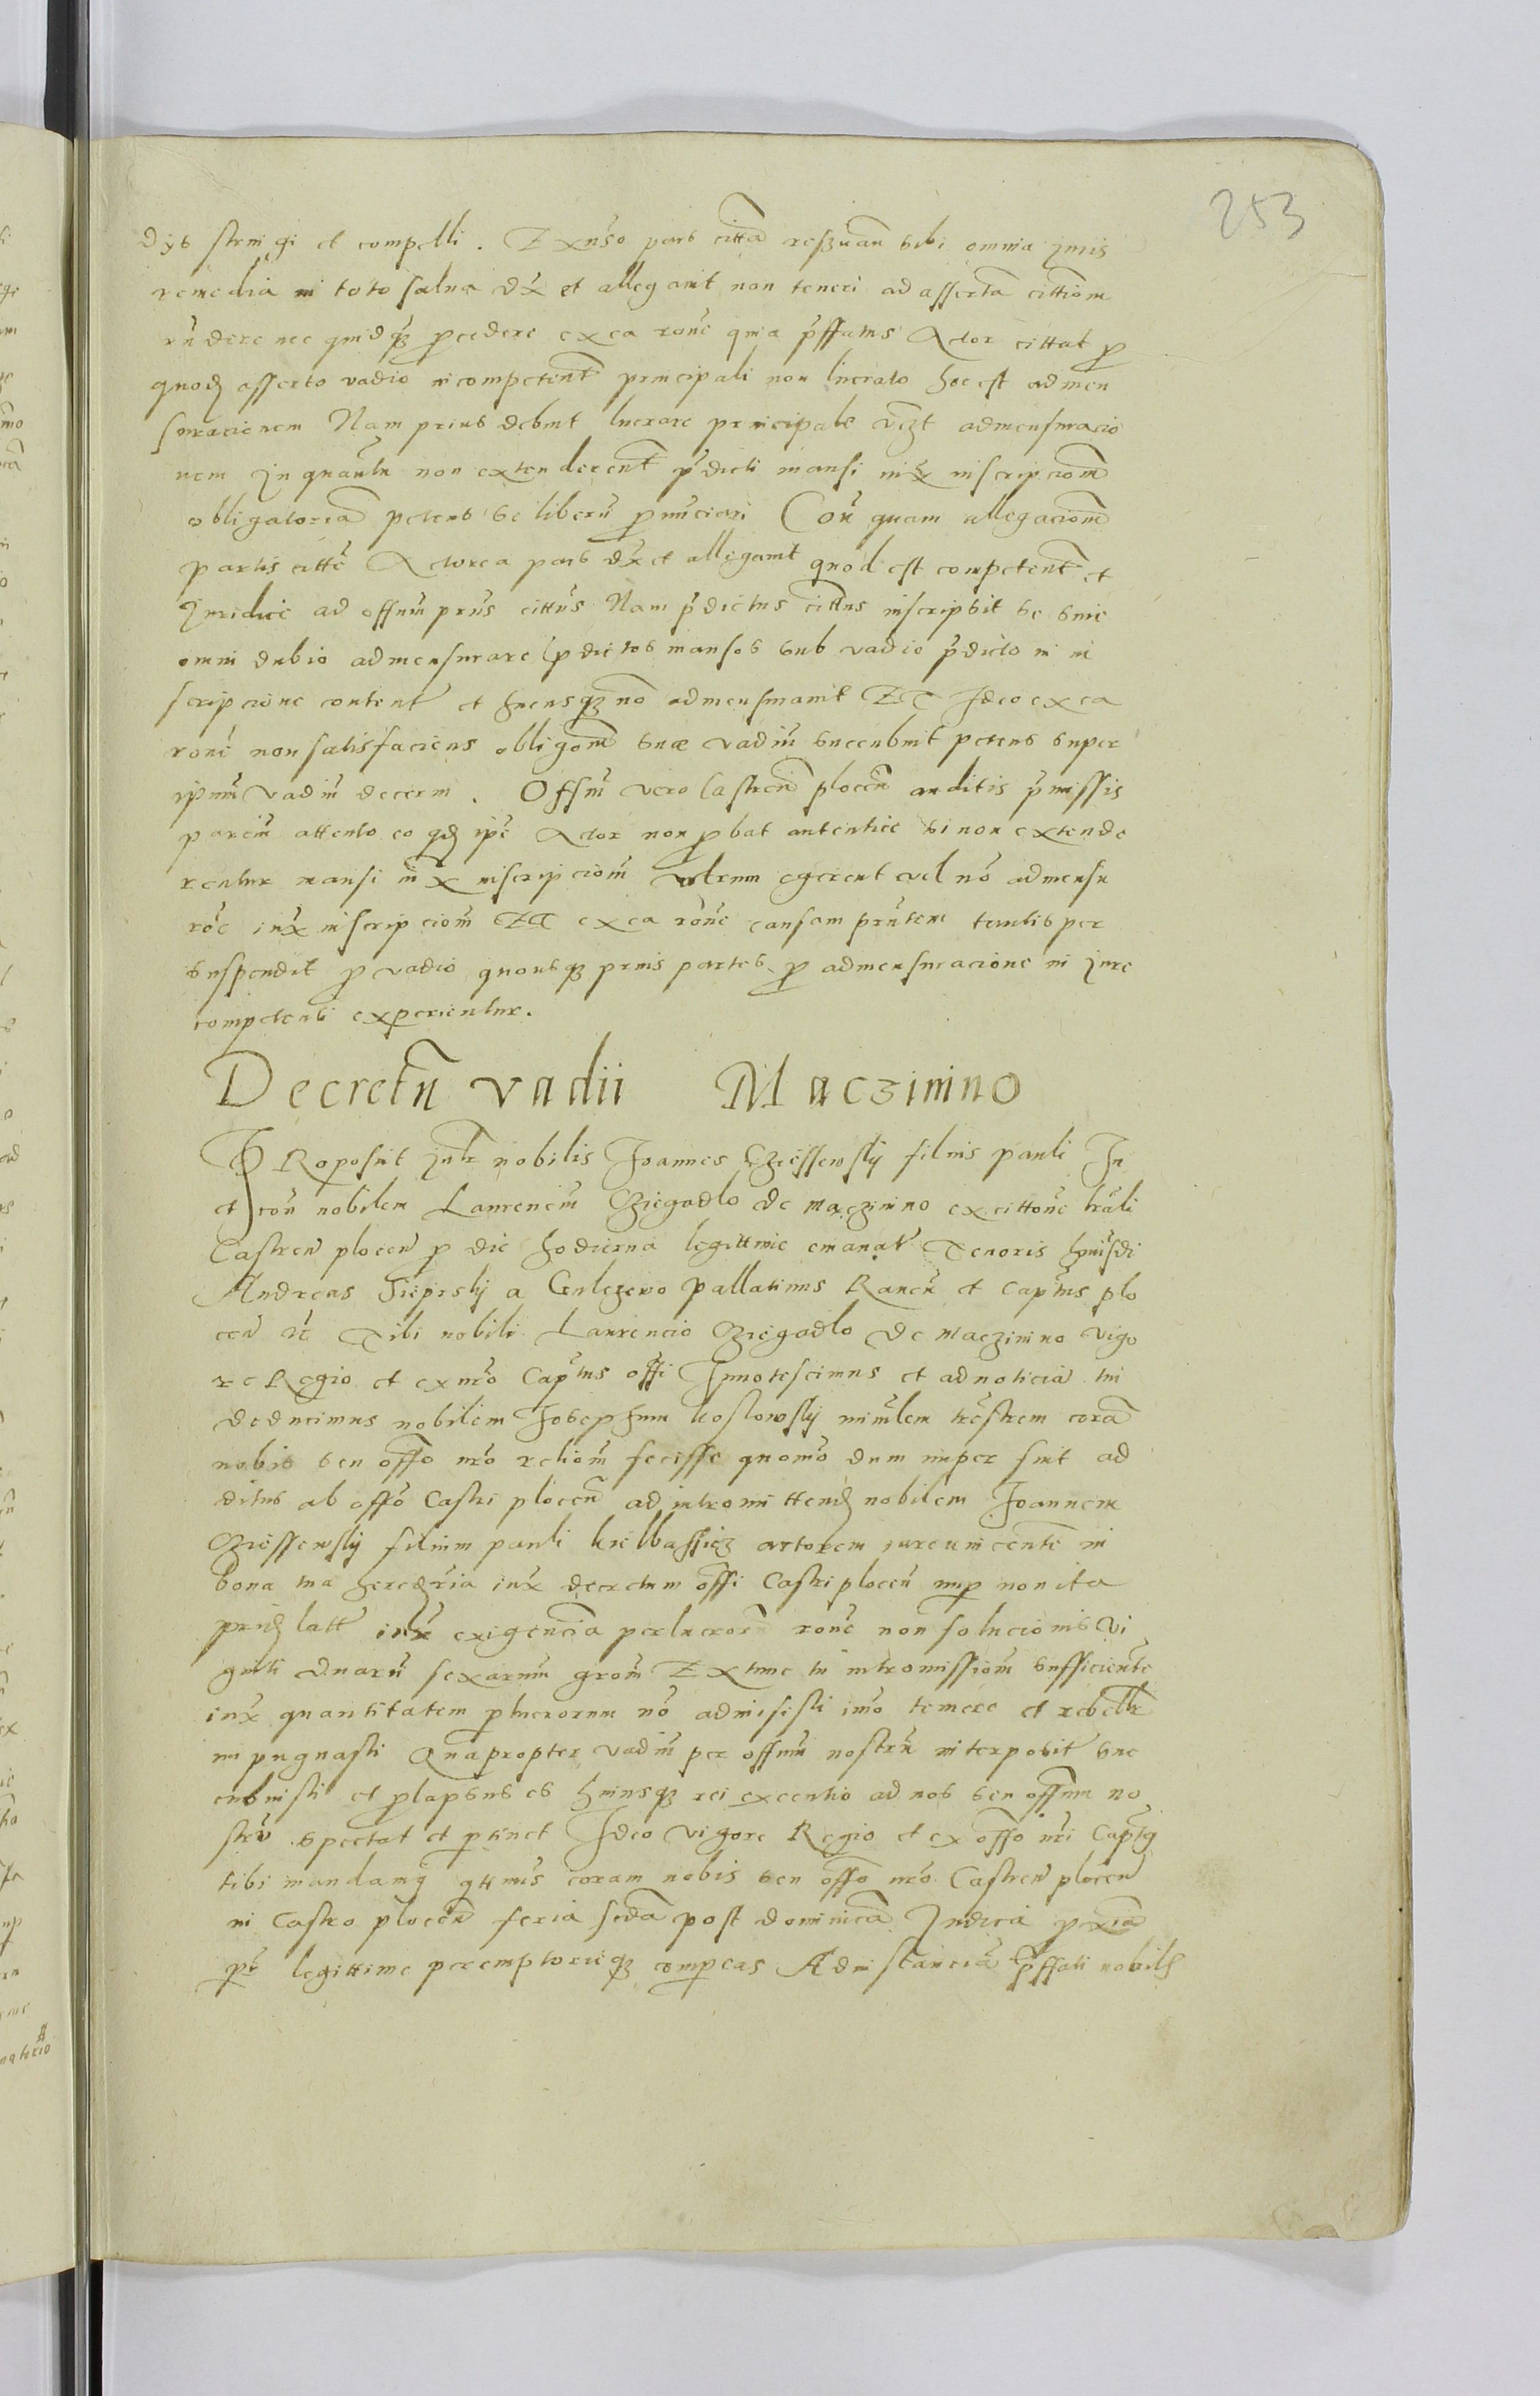 253
dijs strin gi et compelli . Exnŭso pars citta reservan sibi omnia juris
remedia in toto salua dx et allegauit non teneri ad asserta cittiom
rndere nec quidqz pcedere ex ea rone quia pffatus Actor cittat p
quod asserto vadio incompetent principali non lucrato hoc est admen
suracionem Nam prius debuit lucrare principale vzt admensuracio
nem Inquantu non extenderent pdicti mansi inx inscripciom
obligatoria petens se liberu pnunciari Con quam allegaciom
partis citte Actorea pars dx et allegauit quod est competent et
Juridice ad offnm prns cittus Nam pdictus cittus inscripsit se sine
omni dubio admensurare pdictos mansos sub vadio pdicto in in
scripcione content et hucusqz no admensurauit Et Ideo ex ea
rone non satisfaciens obligom suæ vadiu succubuit petens super
ipsum vadiu decerni . Offm vero Castren plocen auditis pmissis
parciu attento eo qd ipe Actor non pbat autentice si non extende
rentur mansi inx inscripciom utrum egerent vel no admensu
roe inx inscripciom Et ex ea rone causam pntem tentis per
suspendit p vadio quousqz prius partes p admensuracione in jure
competenti experientur.
Decretu vadii Maczinino
PRoposuit jntr nobilis Joannes Gzessewskj filius pauli In
et con nobilem Laurenciu Gziegadlo de Maczinino ex cittone lrali
Castren plocen p die hodierna legittime emanat Tenoris huiusdi
Andreas Sieprskj a Gulczewo pallatinus Rauen et Captus plo
cen rc Tibi nobili Laurencio Gziegadlo de Maczinino vigo
re Regio et ex nro Captus offi Innotescimus et ad noticia tui
deducimus nobilem Josephum koslowskj ministrlem trestrem cora
nobis seu offo nro reliom fecisse quomo dum nuper fuit ad
ditus ab offo Castri plocen ad intromittend nobilem Joannem
Gziessewskj filium pauli kielbassicz actorem jure uincente in
bona tua hereditria inx decretum offi Castri plocen nup non ita
prid latt inx exigencia perlucror rone non solucionis vi
ginti duaru sexarum grom Ex tunc tu intromissiom sufficiente
inx quantitatem plucrorum no admisisti imo temere et rebellr
inpugnasti Quapropter vadiu per offium nostru interposit suc
cubuisti et plapsus es huiusqz rei executio ad nos seu offium no
stru spectat et ptinet Ideo vigore Regio et ex offo nri Captus
tibi mandamq qttnus coram nobis seu offo nro Castren plocen
in Castro plocen feria scda post dominica Judica pxia
pt legittime peremptorieqz compeas Ad instancia pffati nobilis